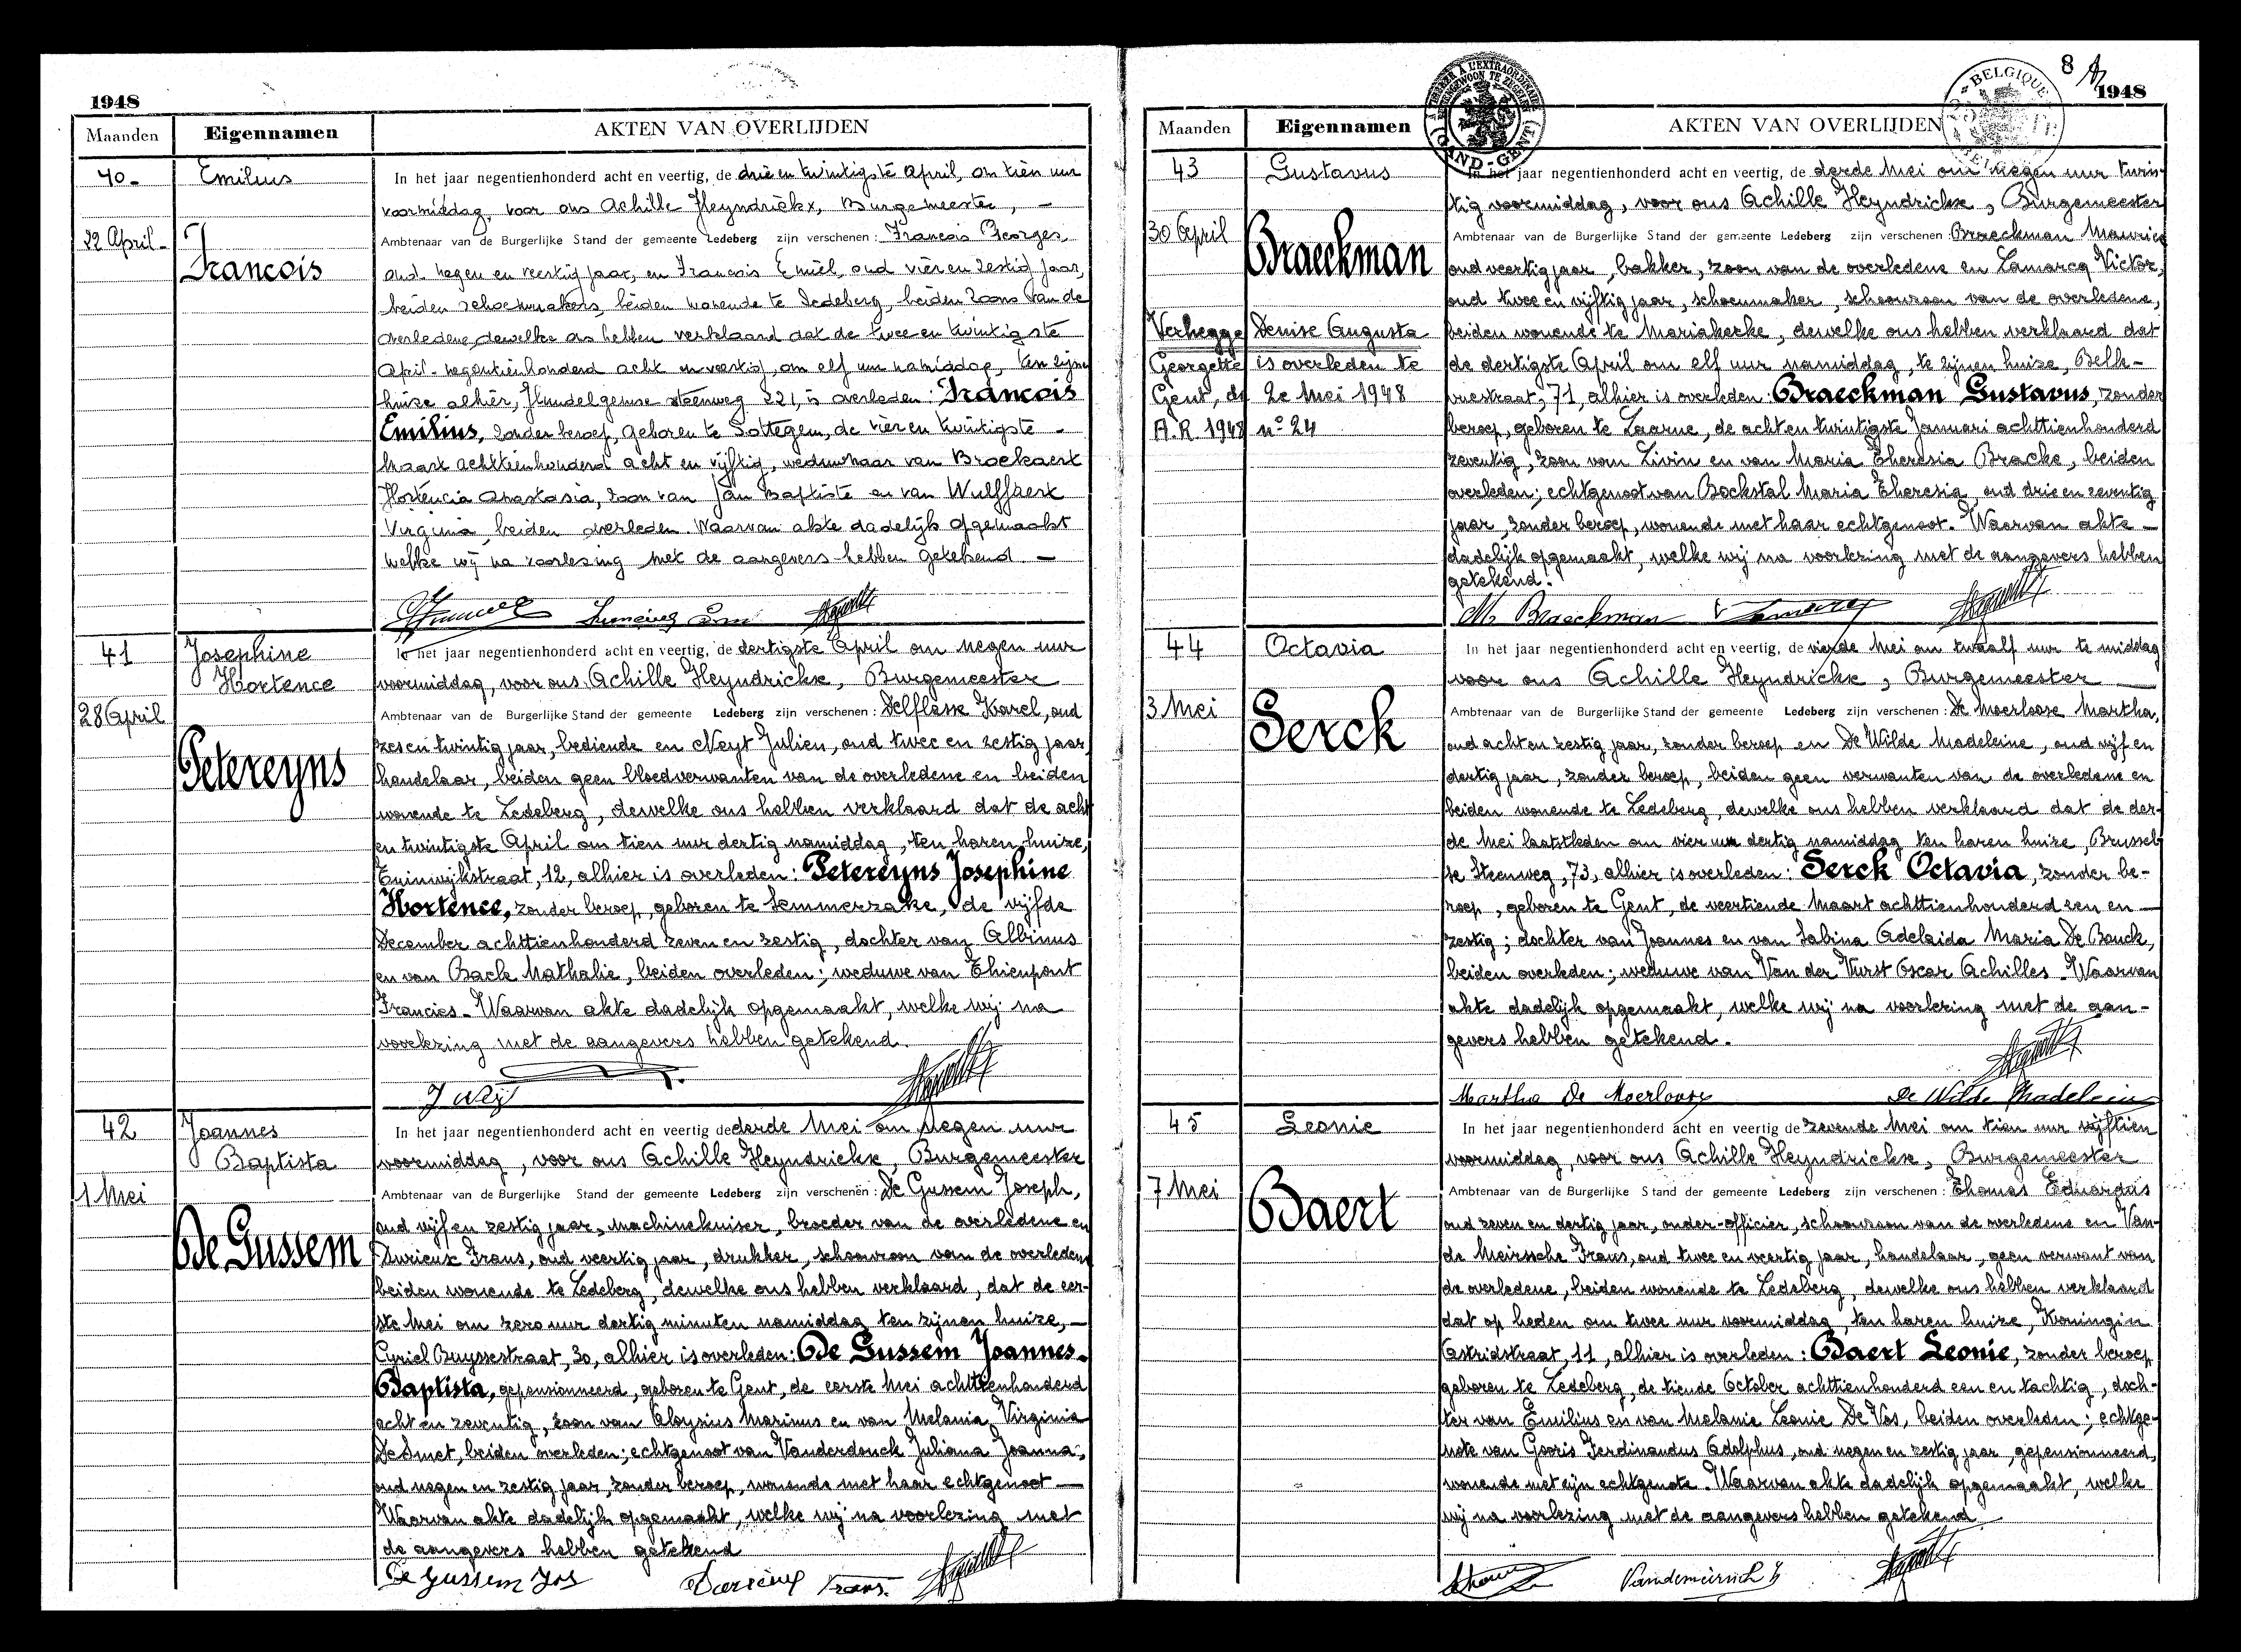 1948
Maanden Eigennamen AKTEN VAN OVERLIJDEN
40 - Emilius
22 April -
Francois
In het jaar negentienhonderd acht en veertig, de drie en twintigste April, om tien uur
voormiddag, voor ons Achille Heyndrickx, Burgemeester, -
Ambtenaar van de Burgerlijke Stand der gemeente Ledeberg zijn verschenen: Francois Georges,
oud negen en veertig jaar, en Francois Emiel, oud vier en zestig jaar,
beiden schoenmakers, beiden wonende te Ledeberg, beiden zoons van de
overledene, dewelke ons hebben verklaard dat de twee en twintigste
April negentienhonderd acht en veertig, om elf uur namiddag, ten zijnen
huize alhier, Hundelgemse steenweg 221, is overleden: Francois
Emilius, zonder beroep, geboren te Sottegem, de vier en twintigste -
Maart achttienhonderd acht en vijftig, weduwnaar van Broekaert
Hortencia Anastasia, zoon van Jan Baptiste en van Wulffaert
Virginia, beiden overleden. Waarvan akte dadelijk opgemaakt
welke wij na voorlezing met de aangevers hebben getekend. -
41
28 April
Josephine
Hortence
Petereyns
In het jaar negentienhonderd acht en veertig, de dertigste April om negen uur
voormiddag, voor ons Achille Heyndrickx, Burgemeester
Ambtenaar van de Burgerlijke Stand der gemeente Ledeberg zijn verschenen: Delflasse Karel, oud
zes en twintig jaar, bediende en Neyt Julien, oud twee en zestig jaar,
handelaar, beiden geen bloedverwanten van de overledene en beiden
wonende te Ledeberg, dewelke ons hebben verklaard dat de acht
en twintigste April om tien uur dertig namiddag, ten haren huize,
Tuinwijkstraat, 12, alhier is overleden: Petereyns Josephine
Hortence, zonder beroep, geboren te Semmerzake, de vijfde
December achttienhonderd zeven en zestig, dochter van Albinus
en van Baele Nathalie, beiden overleden; weduwe van Thienpont
Francies. Waarvan akte dadelijk opgemaakt, welke wij na
voorlezing met de aangevers hebben getekend.
42
1 Mei
Joannes
Baptista
De Gussem
In het jaar negentienhonderd acht en veertig de derde Mei om negen uur
voormiddag, voor ons Achille Heyndrickx, Burgemeester
Ambtenaar van de Burgerlijke Stand der gemeente Ledeberg zijn verschenen: De Gussem Joseph,
oud vijf en zestig jaar, machinekuiser, broeder van de overledene en
Durieux Frans, oud veertig jaar, drukker, schoonzoon van de overledene
beiden wonende te Ledeberg, dewelke ons hebben verklaard, dat de eer-
ste Mei om zero uur dertig minuten namiddag ten zijnen huize, -
Cyriel Buyssestraat, 30, alhier is overleden: De Gussem Joannes-
Baptista, gepensionneerd, geboren te Gent, de eerste Mei achttienhonderd
acht en zeventig, zoon van Aloysius Marinus en van Melania Virginia
De Smet, beiden overleden; echtgenoot van Vanderdonck Juliana Joanna,
oud negen en zestig jaar, zonder beroep, wonende met haar echtgenoot -
Waarvan akte dadelijk opgemaakt, welke wij na voorlezing met
de aangevers hebben getekend
De Gussem Jos Durieux Frans.
8
1948
Maanden Eigennamen AKTEN VAN OVERLIJDEN
GAND-GENT
BELGIQUE
43
30 April
Gustavus
Braeckman
Verhegge Denise Augusta
Georgette is overleden te
Gent, de 2e Mei 1948
A.R. 1948 n° 24
In het jaar negentienhonderd acht en veertig, de derde Mei om negen uur twin-
tig voormiddag, voor ons Achille Heyndrickx, Burgemeester
Ambtenaar van de Burgerlijke Stand der gemeente Ledeberg zijn verschenen: Braeckman Maurice
oud veertig jaar, bakker, zoon van de overledene en Lamarcq Victor,
oud twee en vijftig jaar, schoenmaker, schoonzoon van de overledene,
beiden wonende te Mariakerke, dewelke ons hebben verklaard dat
de dertigste April om elf uur namiddag, te zijnen huize, Belle-
vuestraat, 71, alhier is overleden: Braeckman Gustavus, zonder
beroep, geboren te Laarne, de acht en twintigste Januari achttienhonderd
zeventig, zoon van Livin en van Maria Theresia Bracke, beiden
overleden; echtgenoot van Bockstal Maria Theresia, oud drie en zeventig
jaar, zonder beroep, wonende met haar echtgenoot. Waarvan akte -
dadelijk opgemaakt, welke wij na voorlezing met de aangevers hebben
getekend.
M. Braeckman
44
3 Mei
Octavia
Serck
In het jaar negentienhonderd acht en veertig, de vierde Mei om twaalf uur te middag
voor ons Achille Heyndrickx, Burgemeester
Ambtenaar van de Burgerlijke Stand der gemeente Ledeberg zijn verschenen: De Moerloose Martha,
oud acht en zestig jaar, zonder beroep en De Wilde Madeleine, oud vijf en
dertig jaar, zonder beroep, beiden geen verwanten van de overledene en
beiden wonende te Ledeberg, dewelke ons hebben verklaard dat de der-
de Mei laatstleden om vier uur dertig namiddag ten haren huize, Brussel-
se Steenweg, 73, alhier is overleden: Serck Octavia, zonder be-
roep, geboren te Gent, de veertiende Maart achttienhonderd een en -
zestig; dochter van Joannes en van Sabina Adelaida Maria De Bouck,
beiden overleden; weduwe van Van der Vurst Oscar Achilles. Waarvan
akte dadelijk opgemaakt, welke wij na voorlezing met de aan-
gevers hebben getekend.
Martha De Moerloose De Wilde Madeleine
45
7 Mei
Leonie
Baert
In het jaar negentienhonderd acht en veertig de zevende Mei om tien uur vijftien
voormiddag, voor ons Achille Heyndrickx, Burgemeester
Ambtenaar van de Burgerlijke Stand der gemeente Ledeberg zijn verschenen: Thomas Eduardus
oud zeven en dertig jaar, onder-officier, schoonzoon van de overledene en Van-
de Meirssche Frans, oud twee en veertig jaar, handelaar, geen verwant van
de overledene, beiden wonende te Ledeberg, dewelke ons hebben verklaard
dat op heden om twee uur voormiddag, ten haren huize, Koningin
Astridstraat, 11, alhier is overleden: Baert Leonie, zonder beroep
geboren te Ledeberg, de tiende October achttienhonderd een en tachtig, doch-
ter van Emilius en van Melanie Leonie De Vos, beiden overleden; echtge-
note van Gooris Ferdinandus Adolphus, oud negen en zestig jaar, gepensionneerd,
wonende met zijn echtgenote. Waarvan akte dadelijk opgemaakt, welke
wij na voorlezing met de aangevers hebben getekend